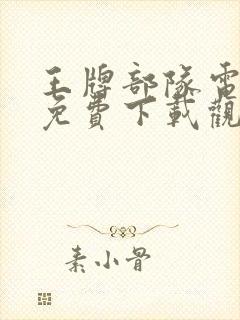 王牌部隊電
免費下載觀
素小骨